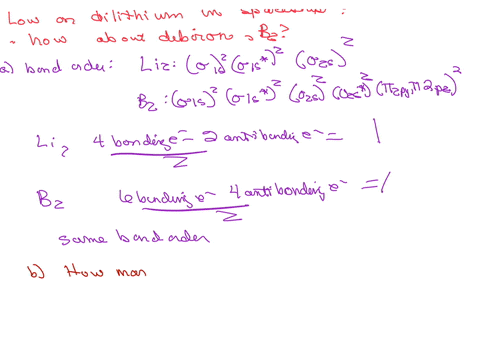 Low on dilithium in spacetime.
how about diboron, B₂?
a) bond order: Li₂: (σ1s)² (σ1s*)² (σ2s)²
B₂: (σ1s)² (σ1s*)² (σ2s)² (σ2s*)² (π2py, π2pz)²
Li₂ 4 bonding e⁻ - 2 antibonding e⁻ = 1
2
B₂ 6 bonding e⁻ 4 antibonding e⁻ = 1
2
same bond order
b) How man